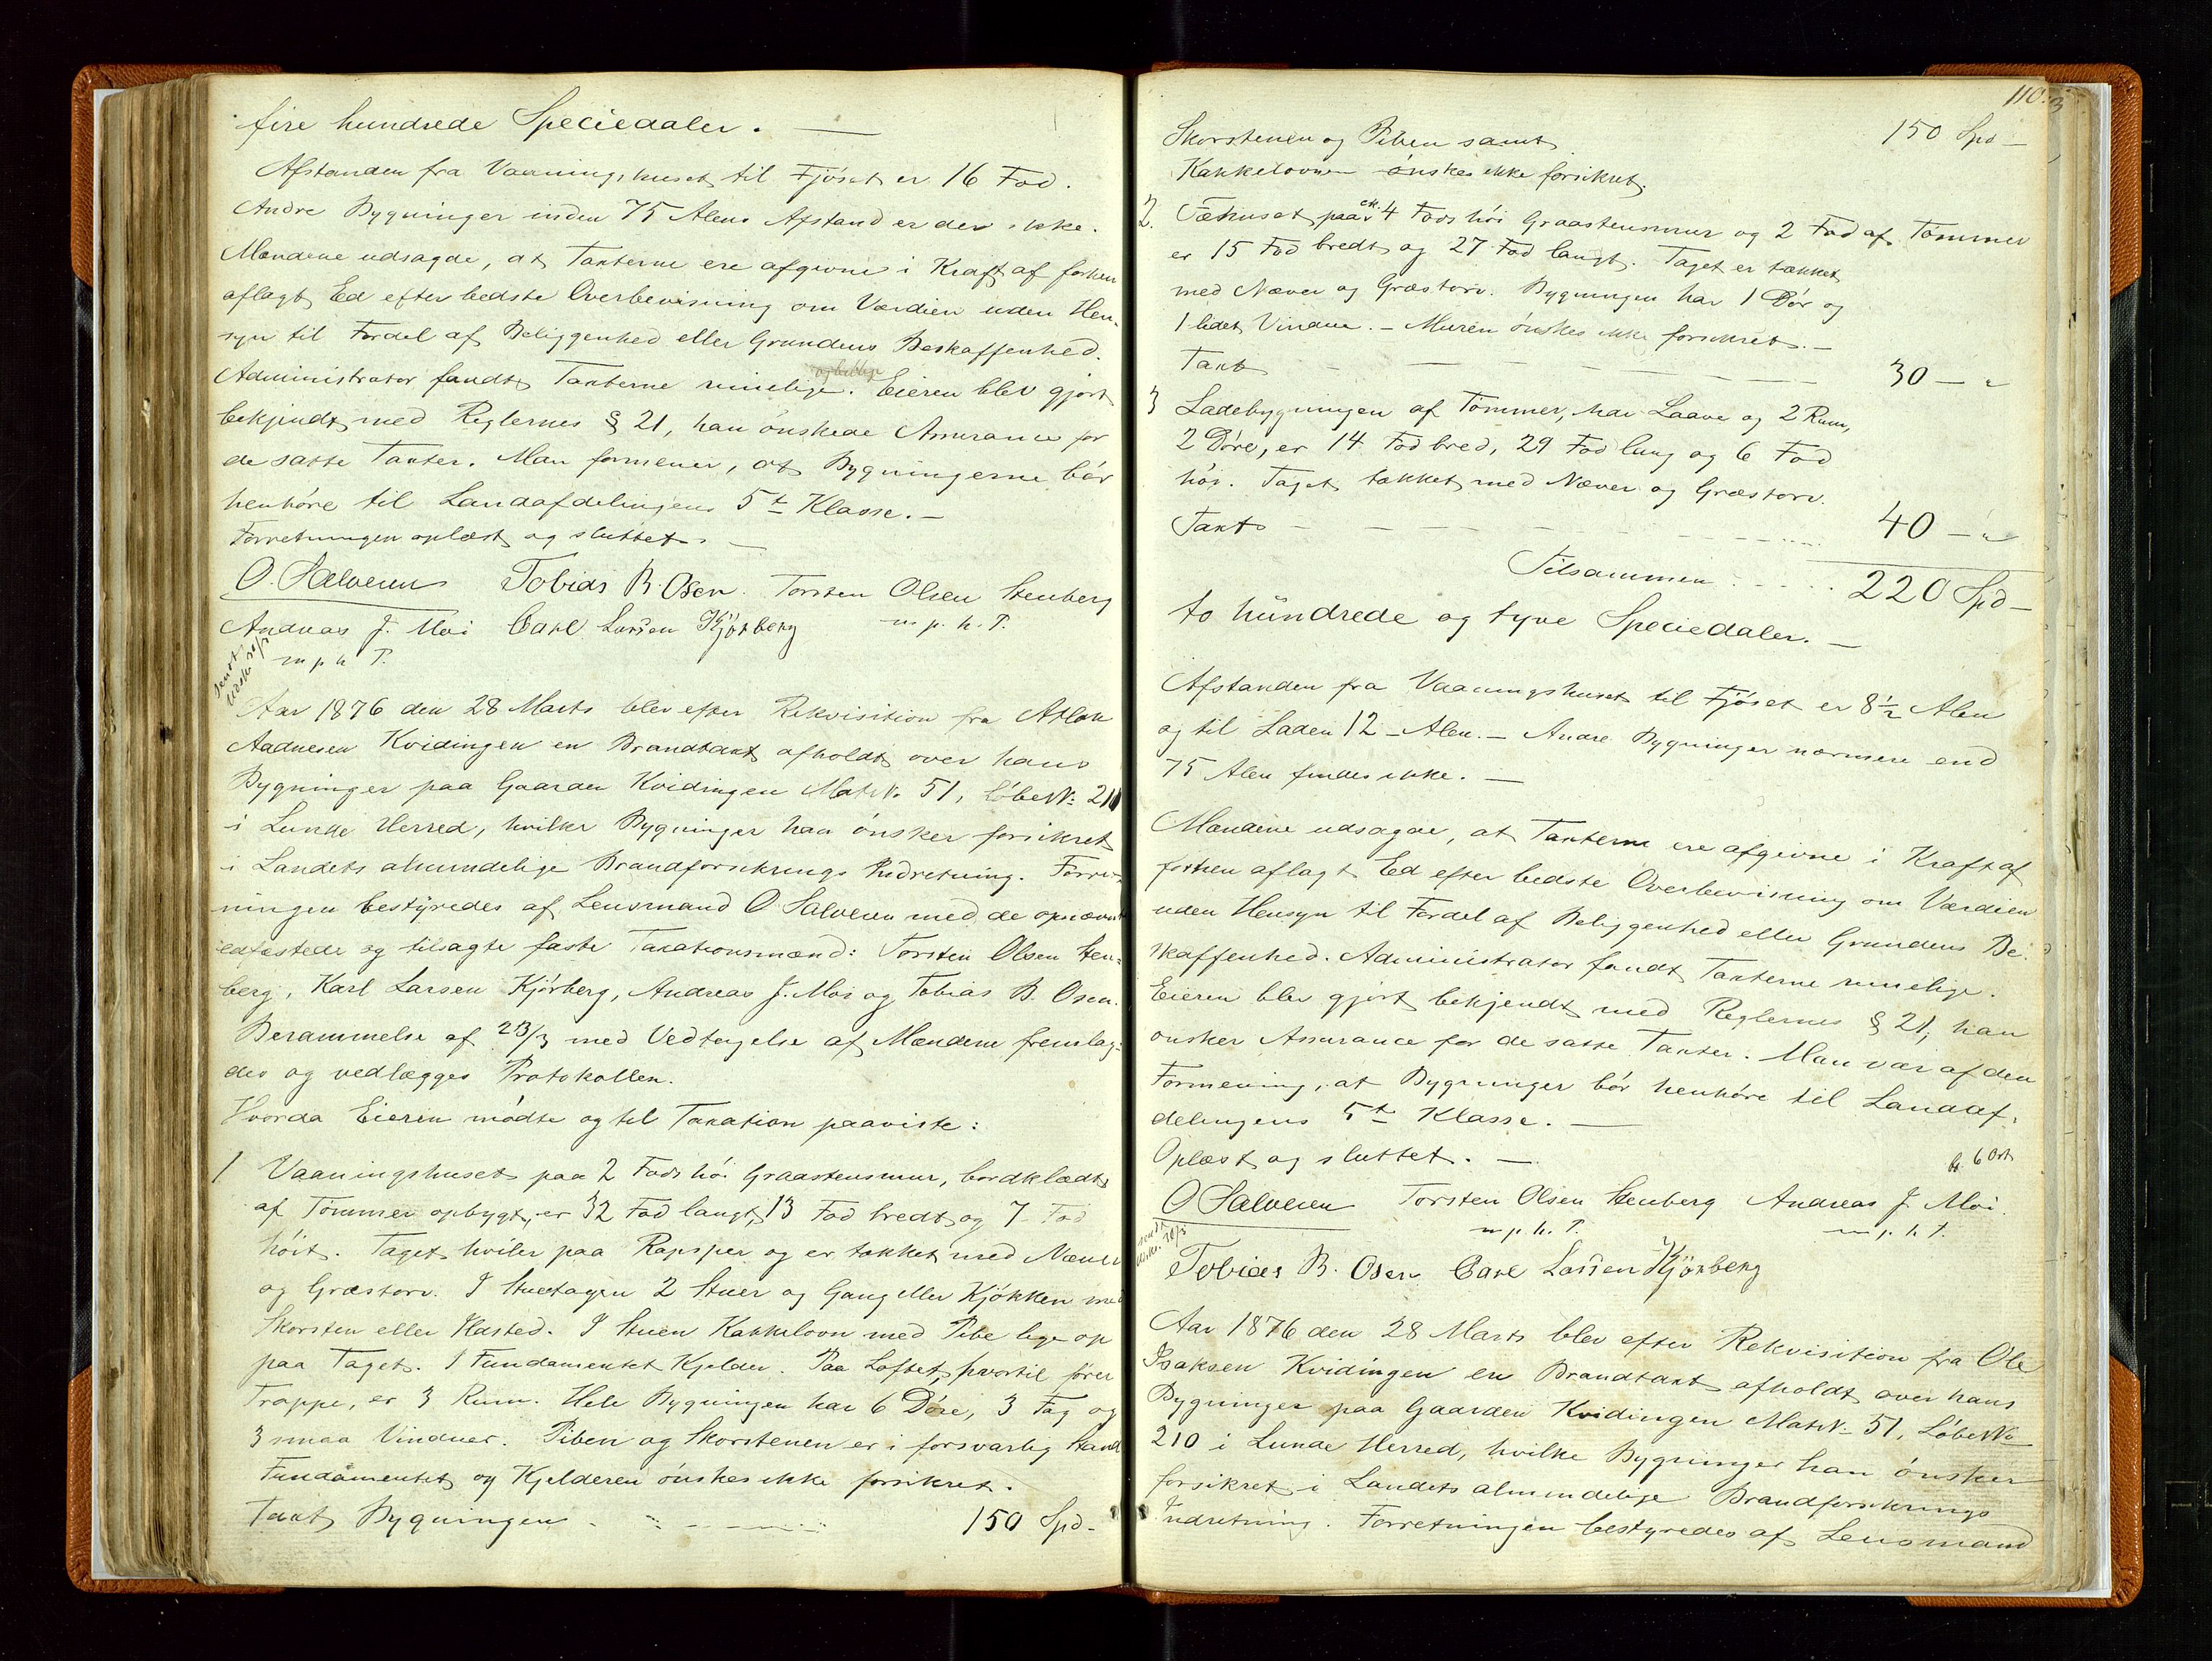 fire hundrede Speciedaler. —
Afstanden fra Vaaningshuset til Fjöset er 16 Fod.
Andre Bygninger inden 75 Alens Afstand er der ikke.
Mændene udsagde, at Taxterne ere afgivne i Kraft af forhen
aflagt Ed efter bedste Overbevisning om Værdien uden Hen-
syn til Fordel af Beliggenhed eller Grundens Beskaffenhed.
Administrator fandt Taxterne rimelige. Eieren blev gjort
bekjendt med Reglernes § 21, han önskede Assurance for
de satte Taxter. Man formener, at Bygningerne bör
henhöre til Landafdelingens 5t Klasse. —
Forretningen oplæst og sluttet. —
O. Salvesen Tobias B. Osen. Torsten Olsen Stenberg
Andreas J. Moi Carl Larsen Kjörberg m. p. h. P.
m p h P.
Aar 1876 den 28 Marts blev efter Rekvisition fra Atlak
Aadnesen Kvidingen en Brandtaxt afholdt over hans
Bygninger paa Gaarden Kvidingen Matr. No. 51, Löbe No: 211
i Lunde Herred, hvilke Bygninger han önsker forsikret
i Landets almindelige Brandforsikrings Indretning. Forret-
ningen bestyredes af Lensmand O Salvesen med de opnævnte
edfæstede og tilsagte faste Taxationsmænd: Torsten Olsen Sten-
berg, Karl Larsen Kjörberg, Andreas J. Moi og Tobias B. Osen.
Berammelse af 23/3 med Vedtagelse af Mændene fremlag-
des og vedlægges Protokollen.
Hvorda Eieren mödte og til Taxation paaviste:
1 Vaaningshuset paa 2 Fods höi Graastensmur, bordklædt
af Tömmer opbygt, er 32 Fod langt, 13 Fod bredt og 7 Fod
höit. Taget hviler paa Rapsper og er tækket med Næver
og Græstorv. I Stuetagen 2 Stuer og Gang eller Kjökken med
Skorsten eller Ildsted. I Stuen Kakkelovn med Pibe lige op
paa Taget. I Fundamentet Kjelder. Paa Loftet, hvortil förer
Trappe, er 3 Rum. Hele Bygningen har 6 Döre, 3 Fag og
3 smaa Vinduer. Piben og Skorstenen er i forsvarlig Stand
Fundamentet og Kjelderen önskes ikke forsikret.
Taxt Bygningen 150 Spd.
110.
Skorstenen og Piben samt 150 Spd —
Kakkelovnen önskes ikke forsikret.
2. Fæhuset paa 4 Fods höi Graastensmur og 2 Fod af Tömmer
er 15 Fod bredt og 27 Fod langt. Taget er tækket
med Næver og Græstorv. Bygningen har 1 Dör og
1 lidet Vindue. — Muren önskes ikke forsikret. —
Taxt — — — 30 — "
3 Ladebygningen af Tömmer, har Laave og 2 Rum,
2 Döre, er 14 Fod bred, 29 Fod lang og 6 Fod
höi. Taget tækket med Næver og Græstorv.
Taxt — — — 40 — "
Tilsammen . . . . . 220 Spd —
to hundrede og tyve Speciedaler. —
Afstanden fra Vaaningshuset til Fjöset er 8½ Alen
og til Laden 12 Alen. — Andre Bygninger nærmere end
75 Alen findes ikke. —
Mændene udsagde, at Taxterne ere afgivne i Kraft af
forhen aflagt Ed efter bedste Overbevisning om Værdien
uden Hensyn til Fordel af Beliggenhed eller Grundens Be-
skaffenhed. Administrator fandt Taxterne rimelige.
Eieren blev gjort bekjendt med Reglernes § 21, han
önsker Assurance for de satte Taxter. Man var af den
Formening, at Bygninger bör henhöre til Landaf-
delingens 5t Klasse. —
Oplæst og sluttet. — 6 Ort
O Salvesen Torsten Olsen Stenberg Andreas J. Moi.
m p. h. P. m p. h P.
Tobias B. Osen Carl Larsen Kjörberg
Aar 1876 den 28 Marts blev efter Rekvisition fra Ole
Isaksen Kvidingen en Brandtaxt afholdt over hans
Bygninger paa Gaarden Kvidingen Matr. No. 51, Löbe No
210 i Lunde Herred, hvilke Bygninger han önsker
forsikret i Landets almindelige Brandforsikrings
Indretning. Forretningen bestyredes af Lensmand